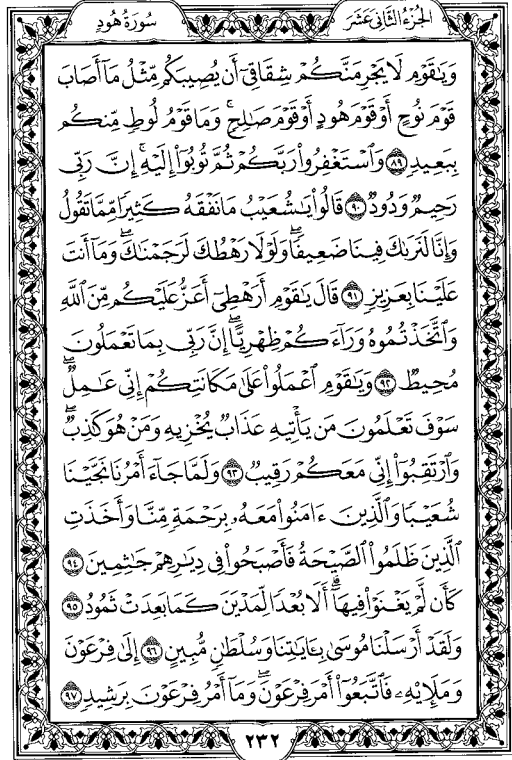 الجزء الثاني عشر
سورة هود
وَيَٰقَوْمِ لَا يَجْرِمَنَّكُمْ شِقَاقِىٓ أَن يُصِيبَكُم مِّثْلُ مَآ أَصَابَ
قَوْمَ نُوحٍ أَوْ قَوْمَ هُودٍ أَوْ قَوْمَ صَٰلِحٍۚ وَمَا قَوْمُ لُوطٍ مِّنكُم
بِبَعِيدٍ ٨٩ وَٱسْتَغْفِرُوا۟ رَبَّكُمْ ثُمَّ تُوبُوٓا۟ إِلَيْهِۚ إِنَّ رَبِّى
رَحِيمٌ وَدُودٌ ٩٠ قَالُوا۟ يَٰشُعَيْبُ مَا نَفْقَهُ كَثِيرًا مِّمَّا تَقُولُ
وَإِنَّا لَنَرَىٰكَ فِينَا ضَعِيفًاۖ وَلَوْلَا رَهْطُكَ لَرَجَمْنَٰكَۖ وَمَآ أَنتَ
عَلَيْنَا بِعَزِيزٍ ٩١ قَالَ يَٰقَوْمِ أَرَهْطِىٓ أَعَزُّ عَلَيْكُم مِّنَ ٱللَّهِ
وَٱتَّخَذْتُمُوهُ وَرَآءَكُمْ ظِهْرِيًّاۖ إِنَّ رَبِّى بِمَا تَعْمَلُونَ
مُحِيطٌ ٩٢ وَيَٰقَوْمِ ٱعْمَلُوا۟ عَلَىٰ مَكَانَتِكُمْ إِنِّى عَٰمِلٌۖ
سَوْفَ تَعْلَمُونَ مَن يَأْتِيهِ عَذَابٌ يُخْزِيهِ وَمَنْ هُوَ كَٰذِبٌۖ
وَٱرْتَقِبُوٓا۟ إِنِّى مَعَكُمْ رَقِيبٌ ٩٣ وَلَمَّا جَآءَ أَمْرُنَا نَجَّيْنَا
شُعَيْبًا وَٱلَّذِينَ ءَامَنُوا۟ مَعَهُۥ بِرَحْمَةٍ مِّنَّا وَأَخَذَتِ
ٱلَّذِينَ ظَلَمُوا۟ ٱلصَّيْحَةُ فَأَصْبَحُوا۟ فِى دِيَٰرِهِمْ جَٰثِمِينَ ٩٤
كَأَن لَّمْ يَغْنَوْا۟ فِيهَآۗ أَلَا بُعْدًا لِّمَدْيَنَ كَمَا بَعِدَتْ ثَمُودُ ٩٥
وَلَقَدْ أَرْسَلْنَا مُوسَىٰ بِـَٔايَٰتِنَا وَسُلْطَٰنٍ مُّبِينٍ ٩٦ إِلَىٰ فِرْعَوْنَ
وَمَلَإِيْهِۦ فَٱتَّبَعُوٓا۟ أَمْرَ فِرْعَوْنَۖ وَمَآ أَمْرُ فِرْعَوْنَ بِرَشِيدٍ ٩٧
٢٣٢